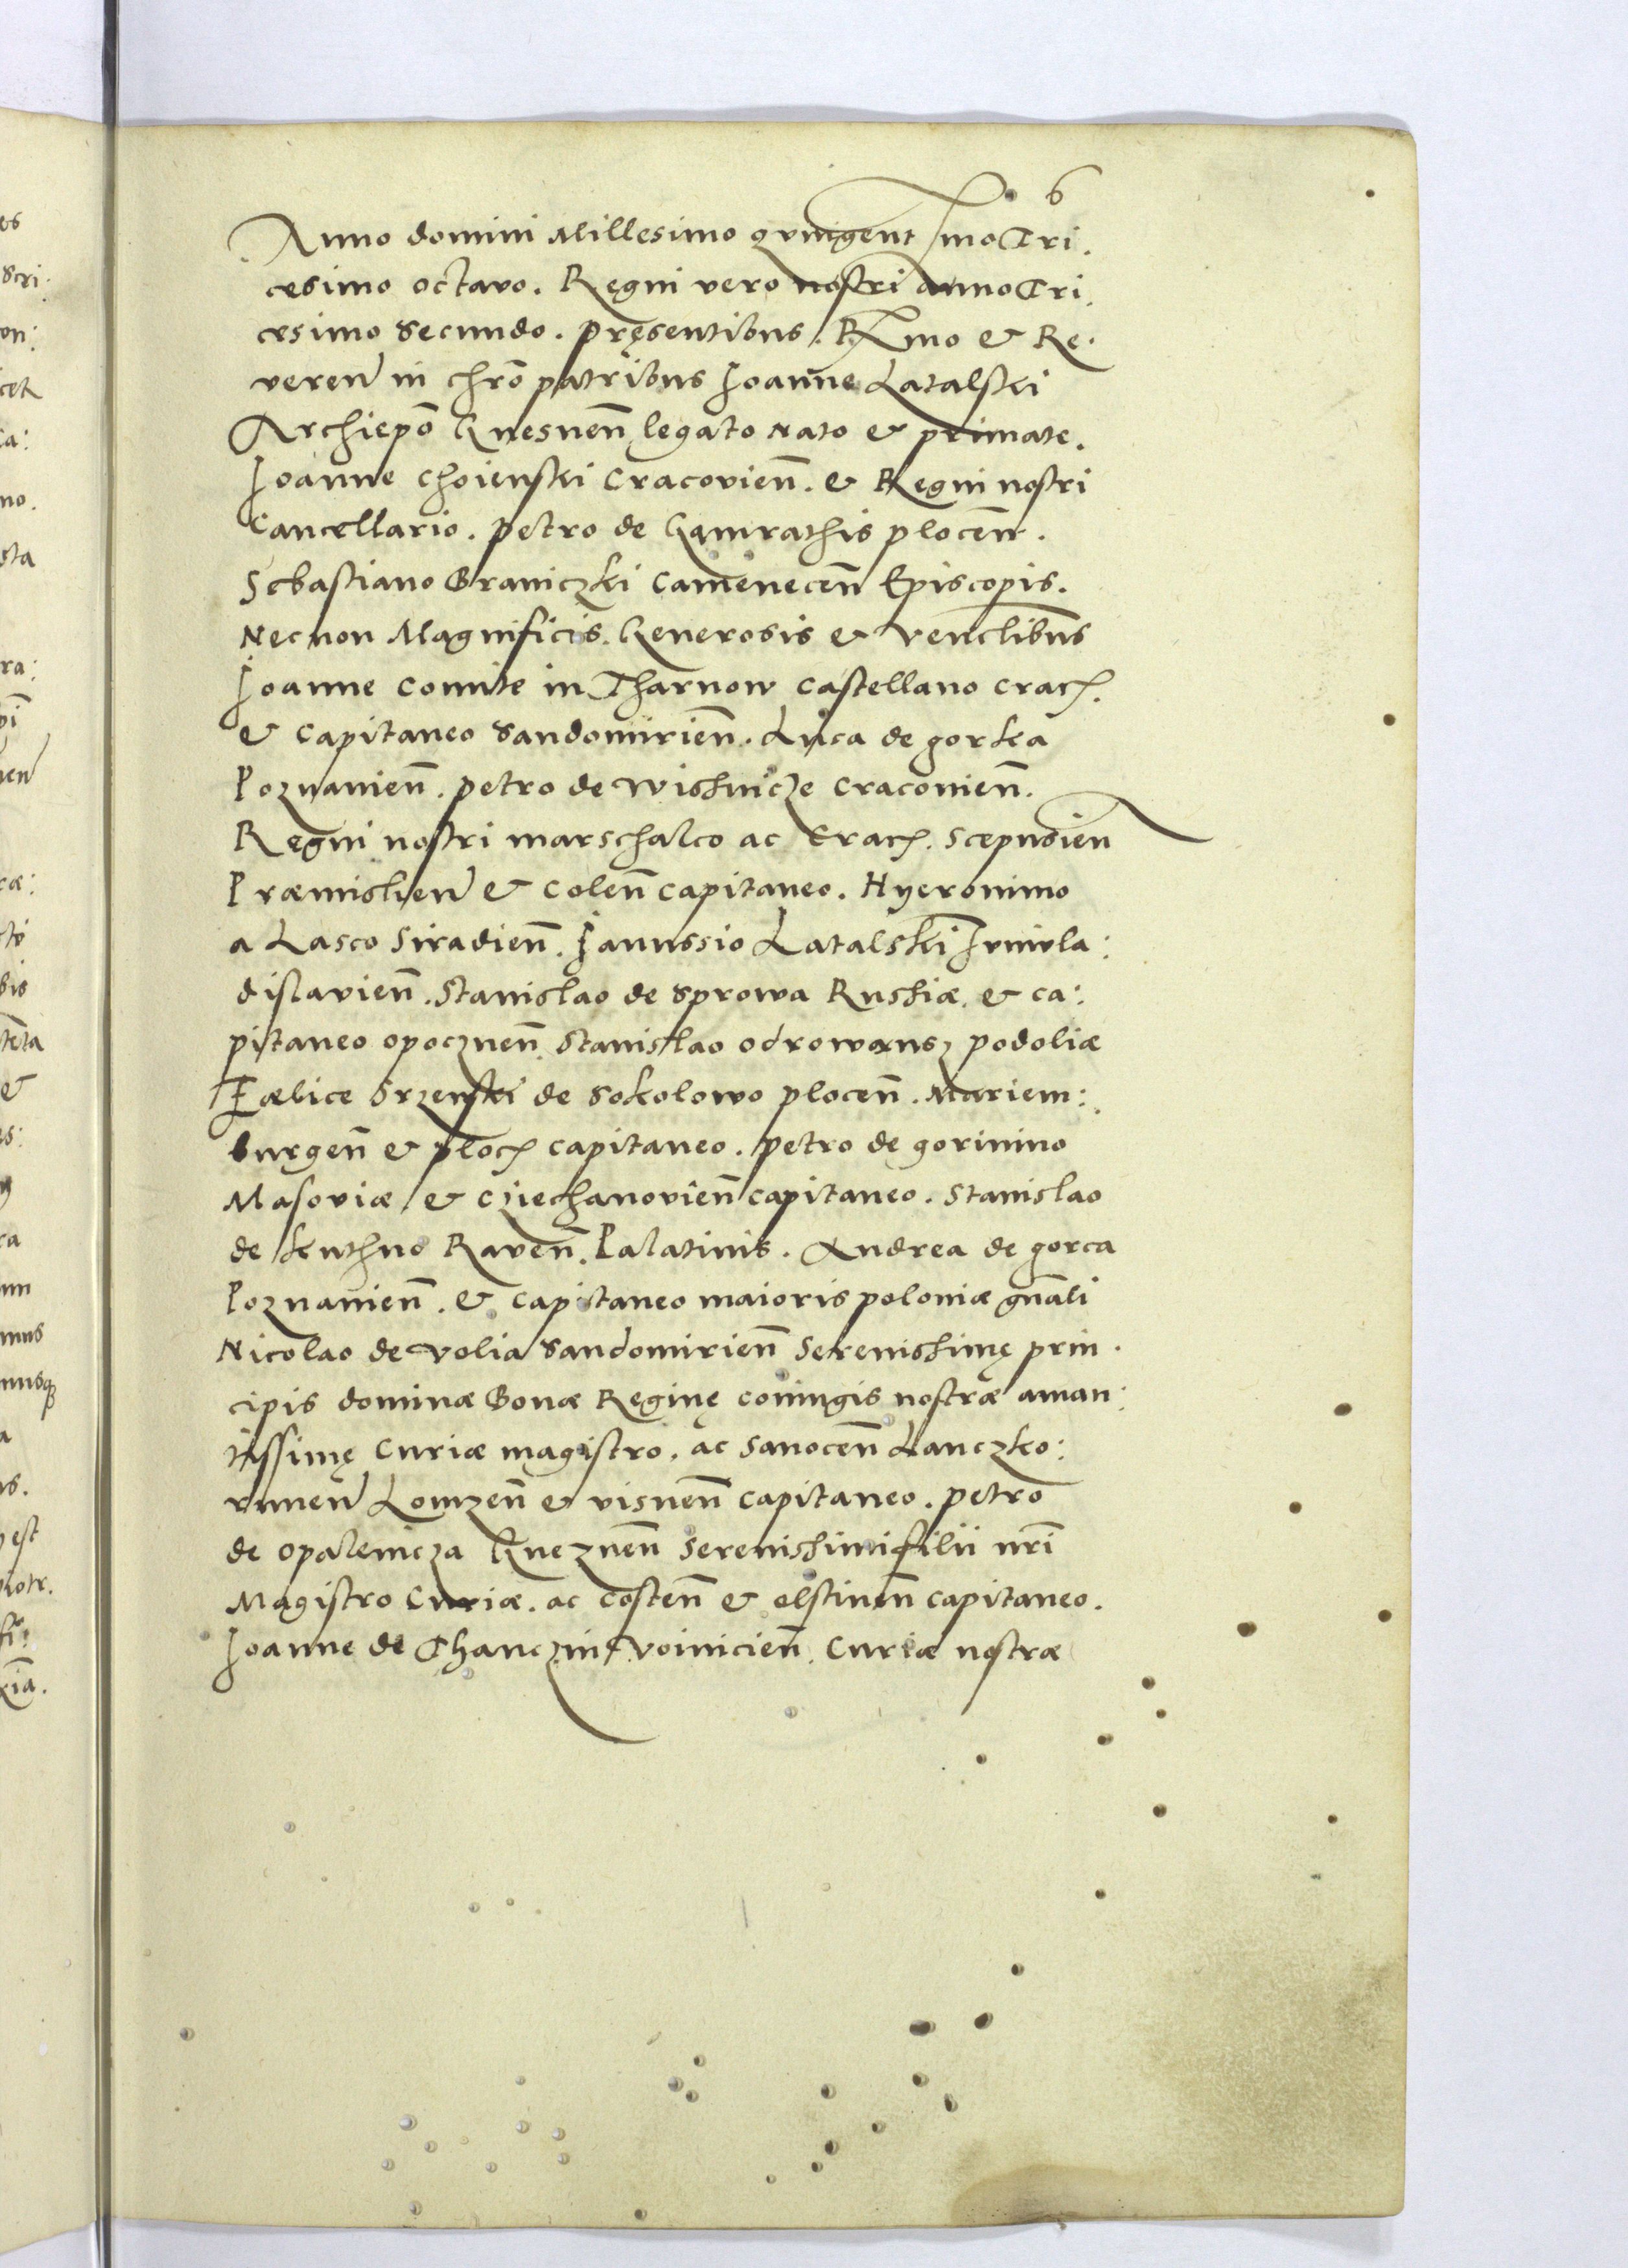 6
Anno domini Millesimo quingent mo Tri.
cesimo octavo. Regni vero nostri anno Tri.
cesimo secundo. Pręsentibus. Rmo & Re.
veren̄ in chr̄o patribus Joanne Latalski
Archiep̄o Gnesnen̄ legato nato & primate.
Joanne Choienski Cracovien̄. & Regni nostri
Cancellario. Petro de Gamrathis plocen̄.
Sebastiano Braniczki Camenecen̄ Episcopis.
Necnon Magnificis. Generosis & venelibus
Joanne comite in Tharnow castellano Crac.
& capitaneo Sandomirien̄. Luca de gorka
Poznanien̄. petro de Wisnicze Cracovien̄.
Regni nostri marschalco ac Crac. Scepusien
Præmislien̄ & Colen̄ capitaneo. Hyeronimo
a Lasco Siradien̄. Janussio Latalski Juniula:
dislavien̄. Stanislao de Sprowa Russiæ. & ca:
pitaneo opocznen̄ Stanislao odrowansz podoliæ
Fælice Srzenski de Sokolowo plocen̄. Mariem:
burgen̄ & ploc capitaneo. petro de gorinino
Masoviæ & Cziechanovien̄ capitaneo. Stanislao
de kuthno Raven̄. Palatinis. Andrea de gorca
Poznanien̄. & capitaneo maioris poloniæ gn̄ali
Nicolao de Volia Sandomirien̄ Serenissimę prin.
cipis dominæ Bonæ Reginę coniugis nostræ aman:
tissimę Curiæ magistro. ac Sanocen̄ Lanczko:
runen̄ Lomzen̄ & visnen̄ capitaneo. petro
de opalenicza Gneznen̄ Serenissimi filii nr̄i
Magistro Curiæ. ac Costen̄ & olstinen̄ capitaneo.
Joanne de Thanczin Voinicien̄. Curiæ nostræ